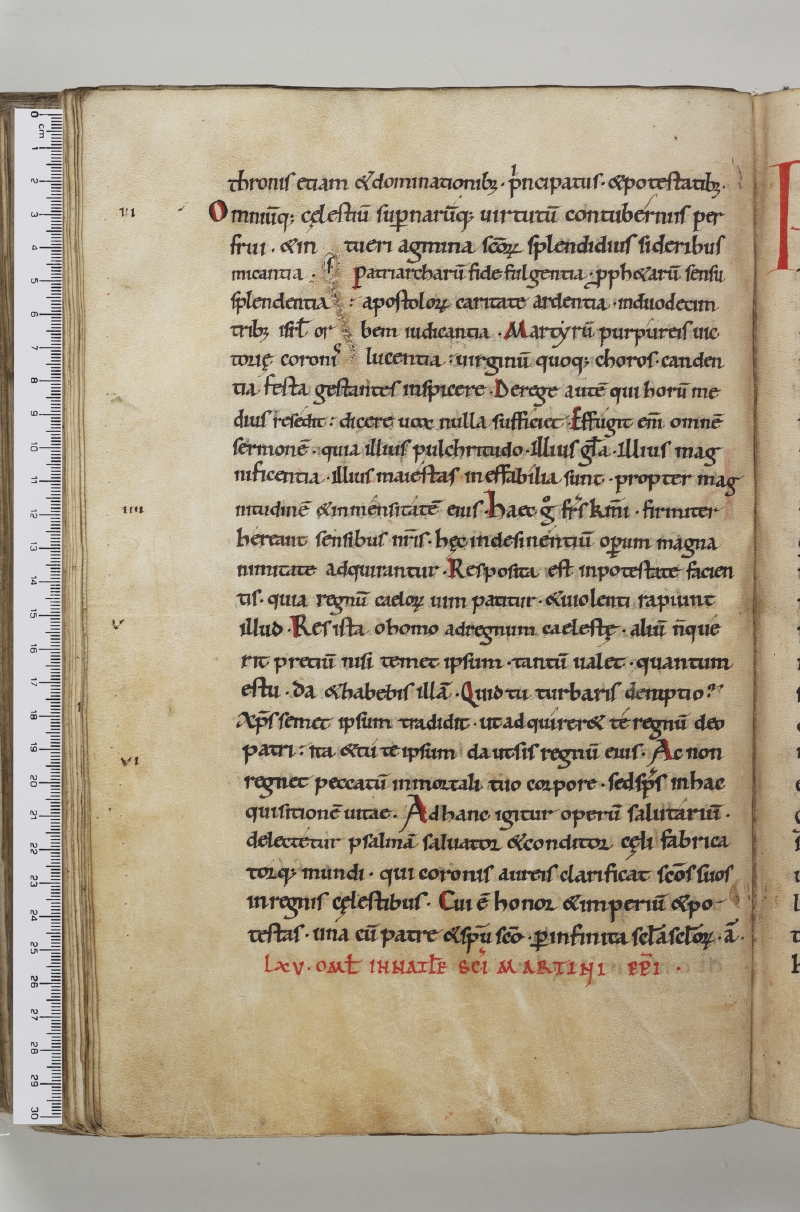 thronis etiam &dominationib; · p̍ncipatus · &potestatib; ·
III Omniūq; cęlestiū sup̲narūq; uirtutū contuberniis per
frui · &in tueri agmina scōꝝ splendidius sideribus
micantia · Patriarcharū fide fulgentia · ꝓph&arū sensu
splendentia : apostoloꝝ caritate ardentia · induodecim
trib; isrl̄ or bem iudicantia · Martyrū purpureis uic
torię coronis lucentia : uirginū quoq; choros · canden
tia festa gestantes inspicere · De rege autē qui horū me
dius resedit : dicere uox nulla sufficiet · Effugit em̄ omnē
sermonē · quia illius pulchritudo · Illius gl̄a · Illius mag
nificentia · illius maiestas ineffabilia sunt · propter mag
IIII nitudinē &inmensitatē eius · Haec gͦ fr̄s km̄i · firmiter
hereant sensibus nr̄is · hęc indesinentiū oꝑum magna
nimitate adquirantur · Resposita est inpotestate facien
tis · quia regnū caeloꝝ uim patitur · &uiolenti rapiunt
V illud · Res ista o homo adregnum caelestę · aliū n̄ que
rit preciū nisi temet ipsum · tantū ualet · quantum
es tu · da &habebis illā · Quid tu turbaris de mptio?
Xp̄s semet ipsum tradidit · ut adquirer& te regnū deo
VI patri : ita &tu te ipsum da utsis regnū eius · Ac non
regnet peccatū inmortali tuo corpore · sed sp̄s inhac
quisitionē uitae · Adhanc igitur operū salutariū ·
delectetur psalmā saluator &conditor cęli fabrica
torq; mundi · qui coronis aureis clarificat scōs suos
inregnis cęlestibus · Cui ē honor &imperiū &po
testas · una cū patre &sp̄u scō · ꝑ infinita sc̄la sc̄loꝝ · ā ·
LXV · OML̄ IN NATL̄E SC̄I MARTINI EP̄I ·